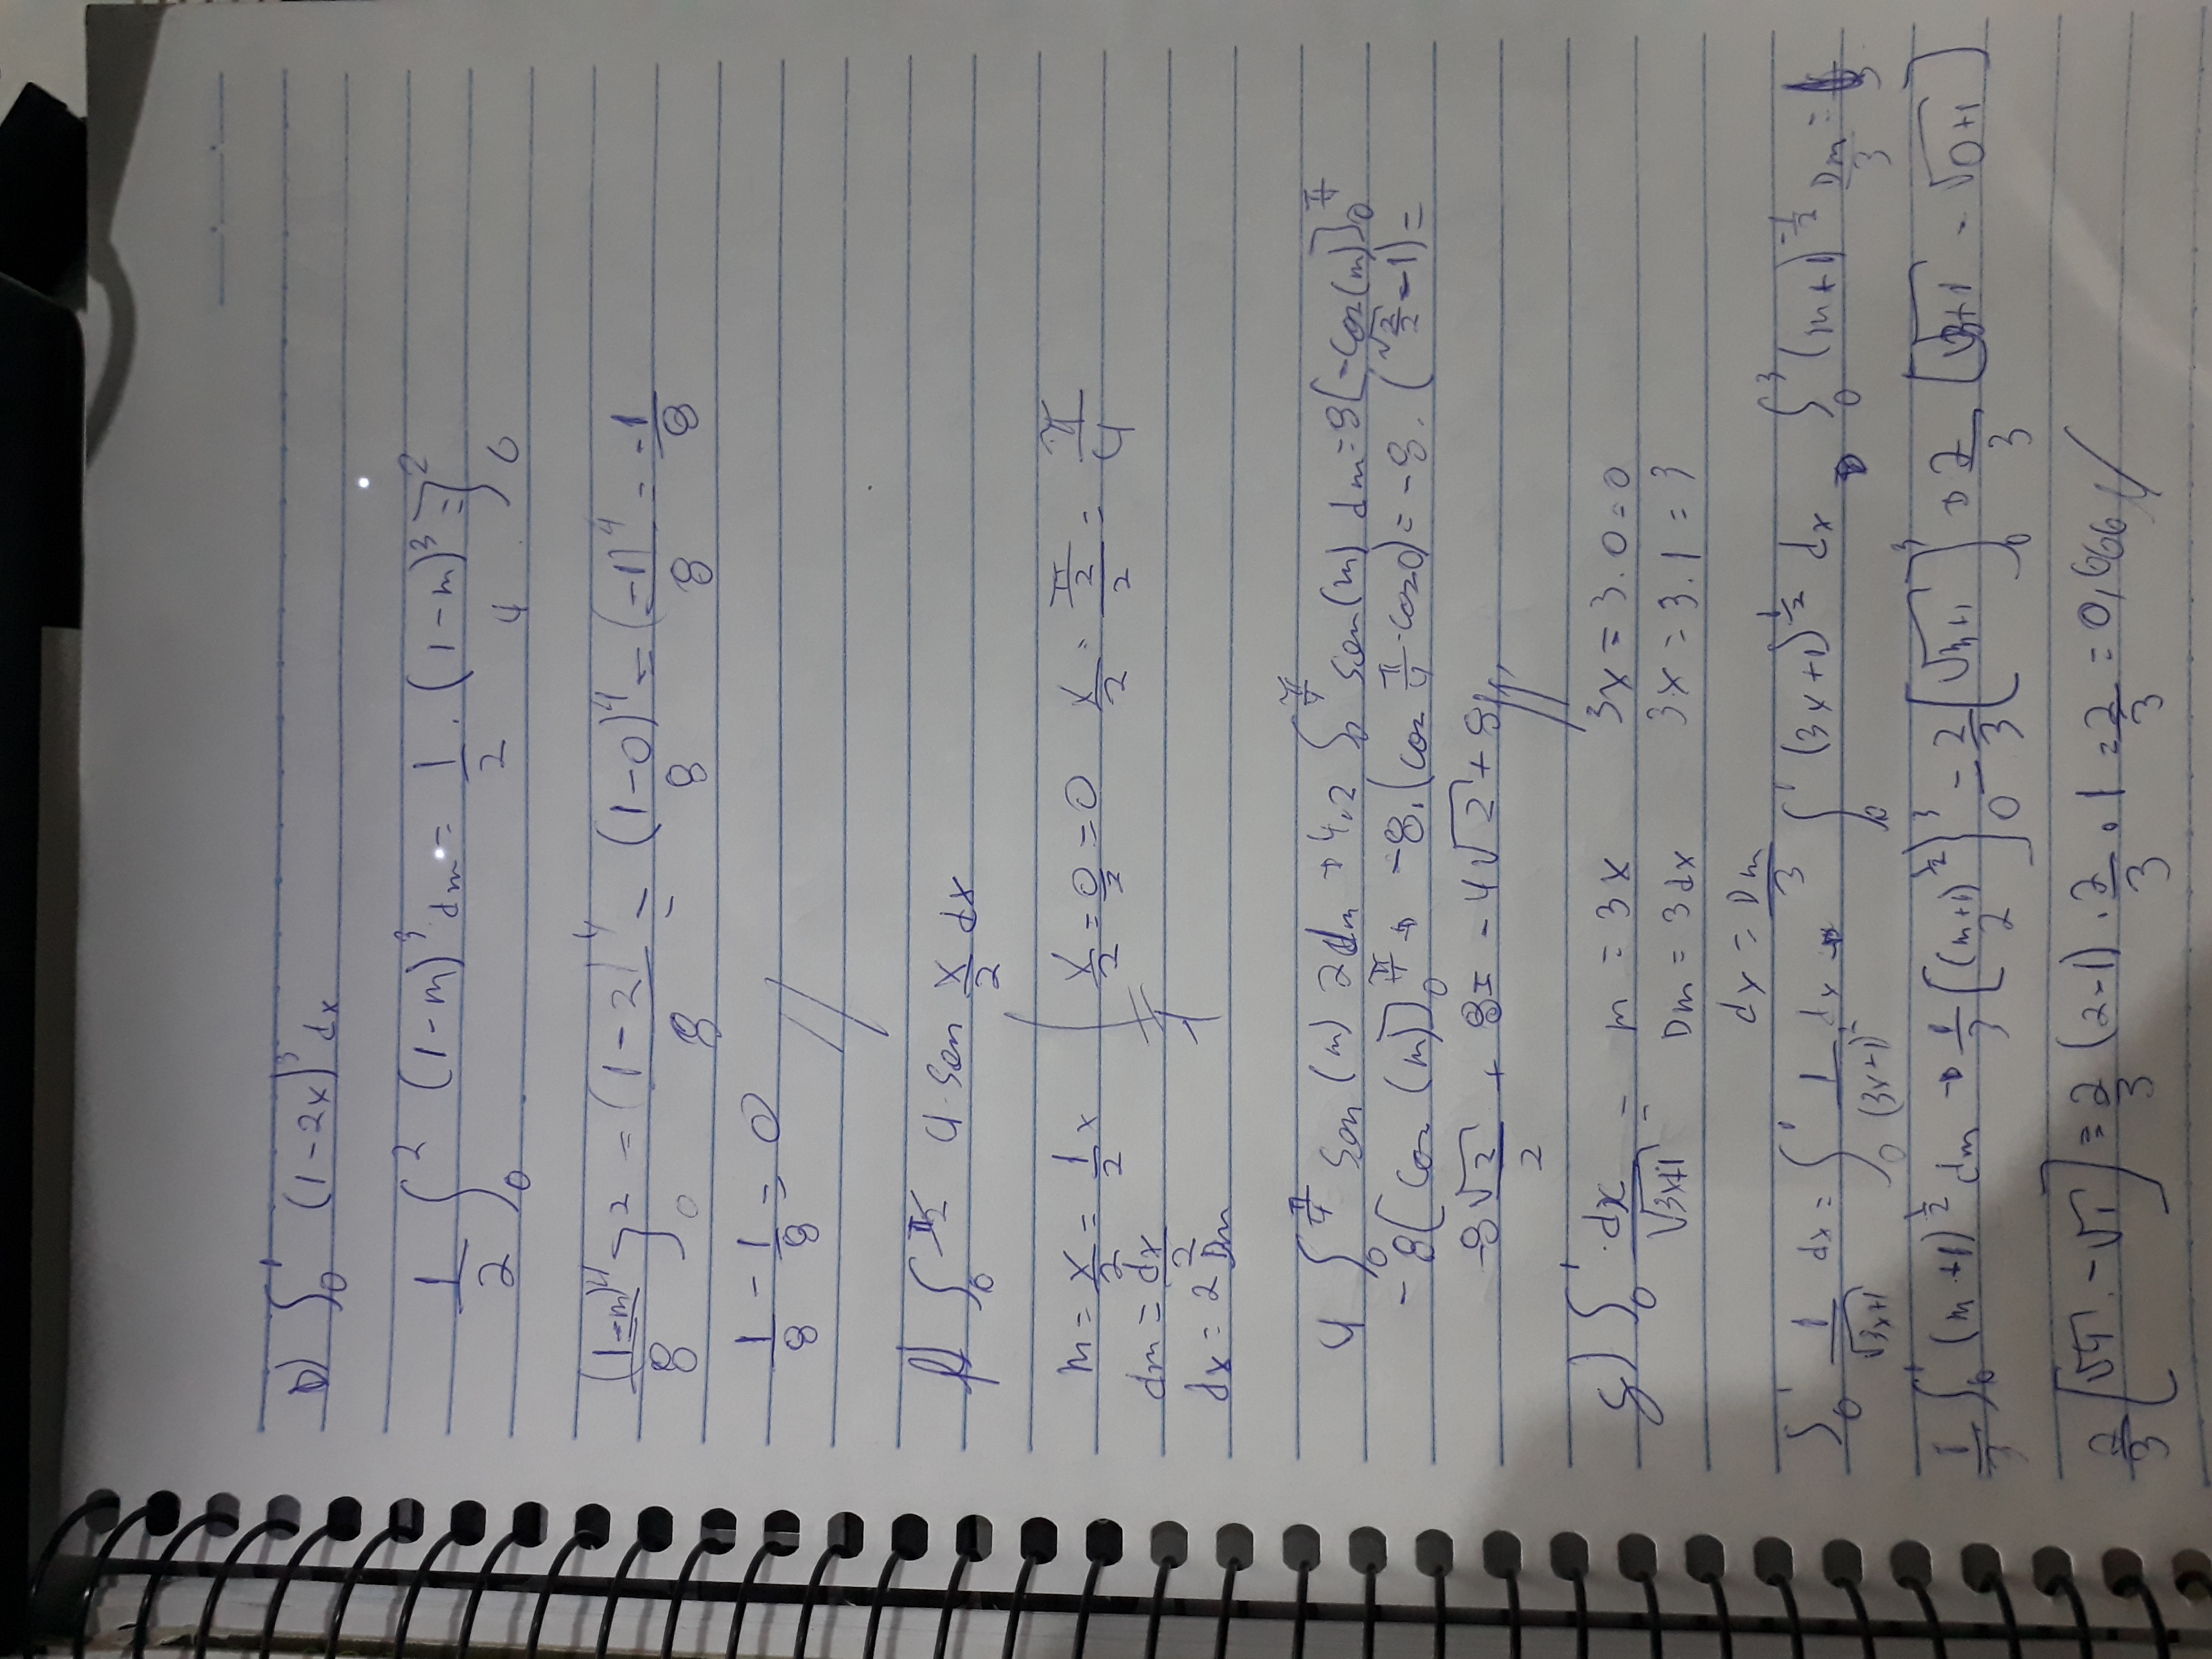 b) ∫₀¹ (1-2x)³ dx
1/2 ∫₀² (1-m)³ dm = 1/2 . (1-m)³/4 = ]₀²
(1-m)⁴/8 ]₀² = (1-2)⁴/8 = (1-0)⁴/8 = (-1)⁴/8 = -1/8
1/8 - 1/8 = 0 //
f) ∫₀^π/2 4 sen x/2 dx
m = x/2 = 1/2 x | x/2 = 0/2 = 0 x/2 = π/2/2 = π/4
dm = dx/2
dx = 2 Dm
4 ∫₀^π/4 sen (m) 2dm → 4.2 ∫₀^π/4 sen(m) dm = 8[-cos(m)]₀^π/4
-8[cos (m)]₀^π/4 → -8.(cos π/4 - cos 0) = -8. (√2/2 - 1) =
-8√2/2 + 8 = -4√2 + 8 //
g) ∫₀¹ dx/√3x+1 = m = 3x 3x = 3.0 = 0
Dm = 3dx 3x = 3.1 = 3
dx = Dm/3
∫₀¹ 1/√3x+1 dx = ∫₀¹ 1/(3x+1) dx → ∫₀¹ (3x+1)^1/2 dx → ∫₀³ (m+1)^-1/2 Dm/3 =
1/3 ∫₀¹ (m+1)^1/2 dm → 1/3 [(m+1)^1/2/2]₀³ = 2/3 [√m+1]₀³ → 2/3 [√3+1 - √0+1]
2/3 [√4 - √1] = 2/3 (2-1) . 2/3 . 1 = 2/3 = 0,666 //